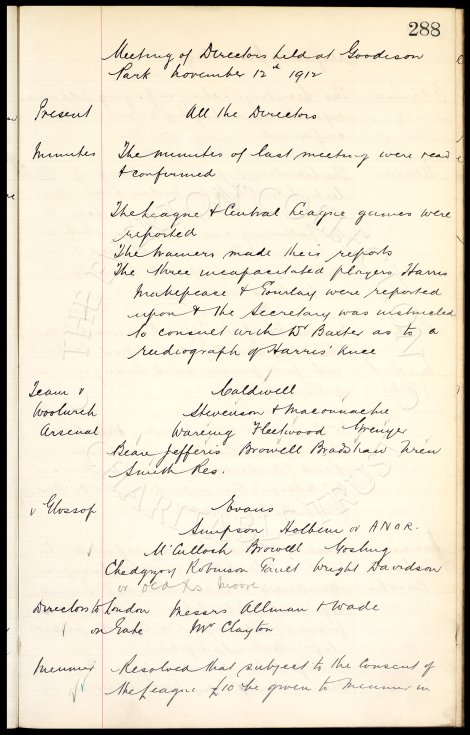 288
Meeting of Directors held at Goodison
Park November 12th 1912
Present All the Directors
Minutes The minutes of last meeting were read
& confirmed
The League & Central League games were
reported
The trainers made their reports
The three incapacitated players Harris
Makepeace & Gourlay were reported
upon & the Secretary was instructed
to consult with Dr Baxter as to a
radiograph of Harris' knee
Team v Caldwell
Woolwich Stevenson & Maconnachie
Arsenal Wareing Fleetwood Grenyer
Beare Jefferis Browell Bradshaw Wren
Smith Res.
v Glossop Evans
Simpson Holbem or ANOR.
McCulloch Browell Gosling
Chedgzoy Robinson Gault Wright Davidson
or Moore.
Directors to London Messrs Allman & Wade
on Gate Mr Clayton
Meunier Resolved that subject to the consent of
the League £10 be given to Meunier in
THE EVERTON COLLECTION
CHARITABLE TRUST